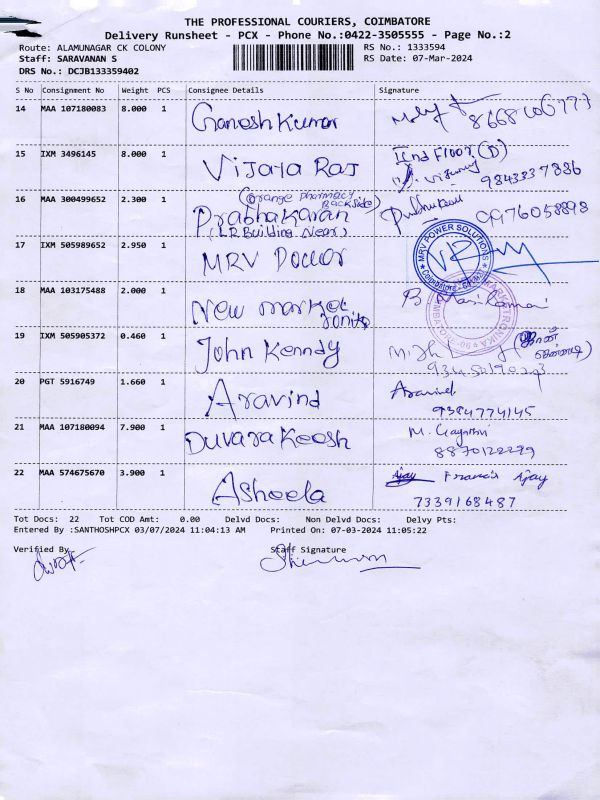 THE PROFESSIONAL COURIERS, COIMBATORE
Delivery Runsheet - PCX - Phone No.:0422-3505555 - Page No.:2
Route: ALAMUNAGAR CK COLONY
RS No.: 1333594
Staff: SARAVANAN S
RS Date: 07-Mar-2024
DRS No.: DCJB133359402
S No Consignment No Weight PCS Consignee Details Signature
14 MAA 107180083 8.000 1 Ganesh Kumar
15 IXM 3496145 8.000 1 Vijaya Raj IInd Floor (D)
9843337886
16 MAA 300499652 2.300 1 (orange pharmacy Backside)
Prabhakaran Prabhakaran 9976058898
(LR Building Near)
17 IXM 505989652 2.950 1 MRV Power
MRV POWER SOLUTIONS
18 MAA 103175488 2.000 1 New market
19 IXM 505905372 0.460 1 John Kenndy
20 PGT 5916749 1.660 1 Aravind Aravind
9384774145
21 MAA 107180094 7.900 1 Duvarakeesh M. Gayathri
8870122279
22 MAA 574675670 3.900 1 Asheela Ajay Francis Ajay
7339168487
Tot Docs: 22 Tot COD Amt: 0.00 Delvd Docs: Non Delvd Docs: Delvy Pts:
Entered By :SANTHOSHPCX 03/07/2024 11:04:13 AM Printed On: 07-03-2024 11:05:22
Verified By Staff Signature